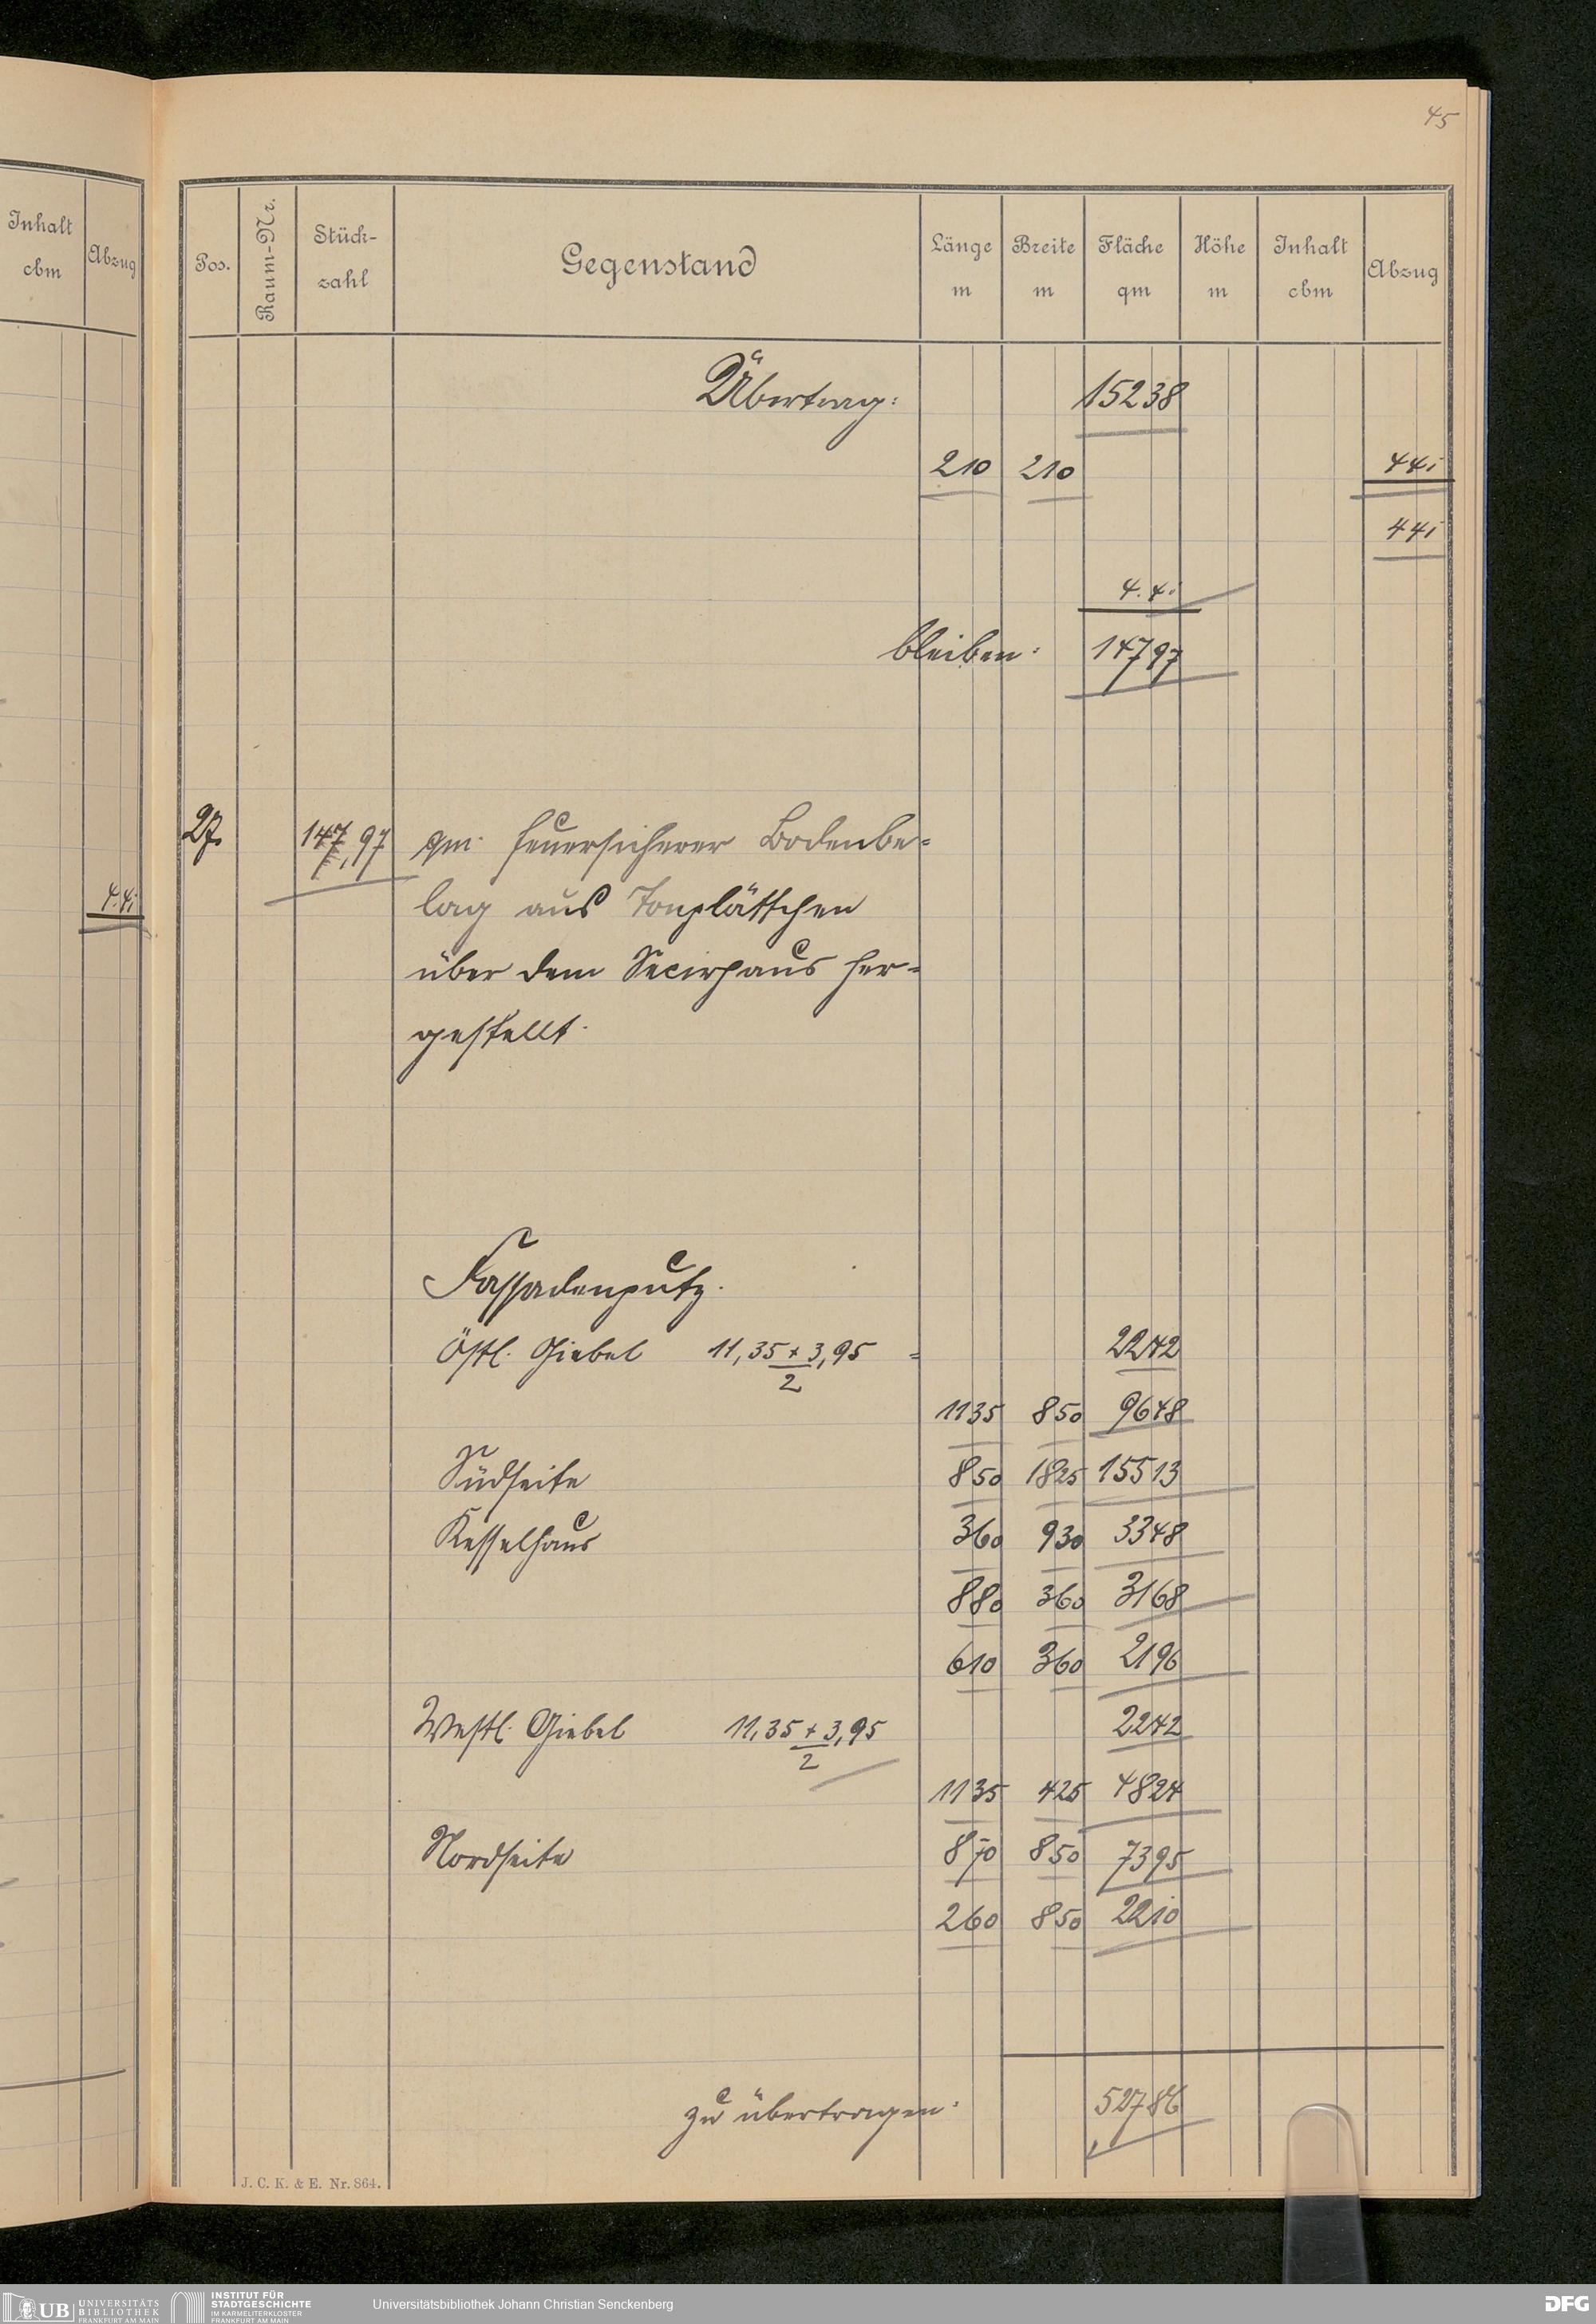 45
Inhalt
cbm
Abzug
4.41
Pos.
Raum-Nr.
Stück-
zahl
Gegenstand
Länge
m
Breite
m
Fläche
qm
Höhe
m
Inhalt
cbm
Abzug
Übertrag: 15238
210 210 441
441
4.41
bleiben: 14797
27. 147,97 qm feuersicherer Bodenbe-
lag aus Tonplättchen
über dem Secirhaus her-
gestellt.
Fassadenputz.
Östl. Giebel 11,35 + 3,95 = 2242
2
1135 850 9648
Südseite 850 1825 15513
Kesselhaus 360 930 3348
880 360 3168
610 360 2196
Westl. Giebel 11,35 + 3,95 2242
2
1135 425 4824
Nordseite 870 850 7395
260 850 2210
zu übertragen: 52786
J. C. K. & E. Nr. 864.
UB UNIVERSITÄTS
BIBLIOTHEK
FRANKFURT AM MAIN
INSTITUT FÜR
STADTGESCHICHTE
IM KARMELITERKLOSTER
FRANKFURT AM MAIN
Universitätsbibliothek Johann Christian Senckenberg
DFG